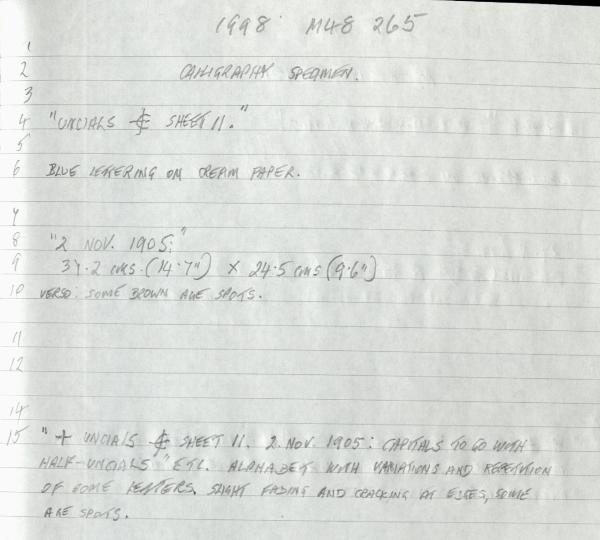 1998 M48 265
1
2 CALLIGRAPHY SPECIMEN.
3
4 "UNCIALS & SHEET 11."
5
6 BLUE LETTERING ON CREAM PAPER.
7
8 "2 NOV. 1905;"
9 37.2 cms. (14.7") x 24.5 cms (9.6")
10 VERSO: SOME BROWN AGE SPOTS.
11
12
14
15 "+ UNCIALS & SHEET 11. 2. NOV. 1905: CAPITALS TO GO WITH
HALF-UNCIALS" ETC. ALPHABET WITH VARIATIONS AND REPETITION
OF SOME LETTERS. SLIGHT FADING AND CRACKING AT EDGES, SOME
AGE SPOTS.